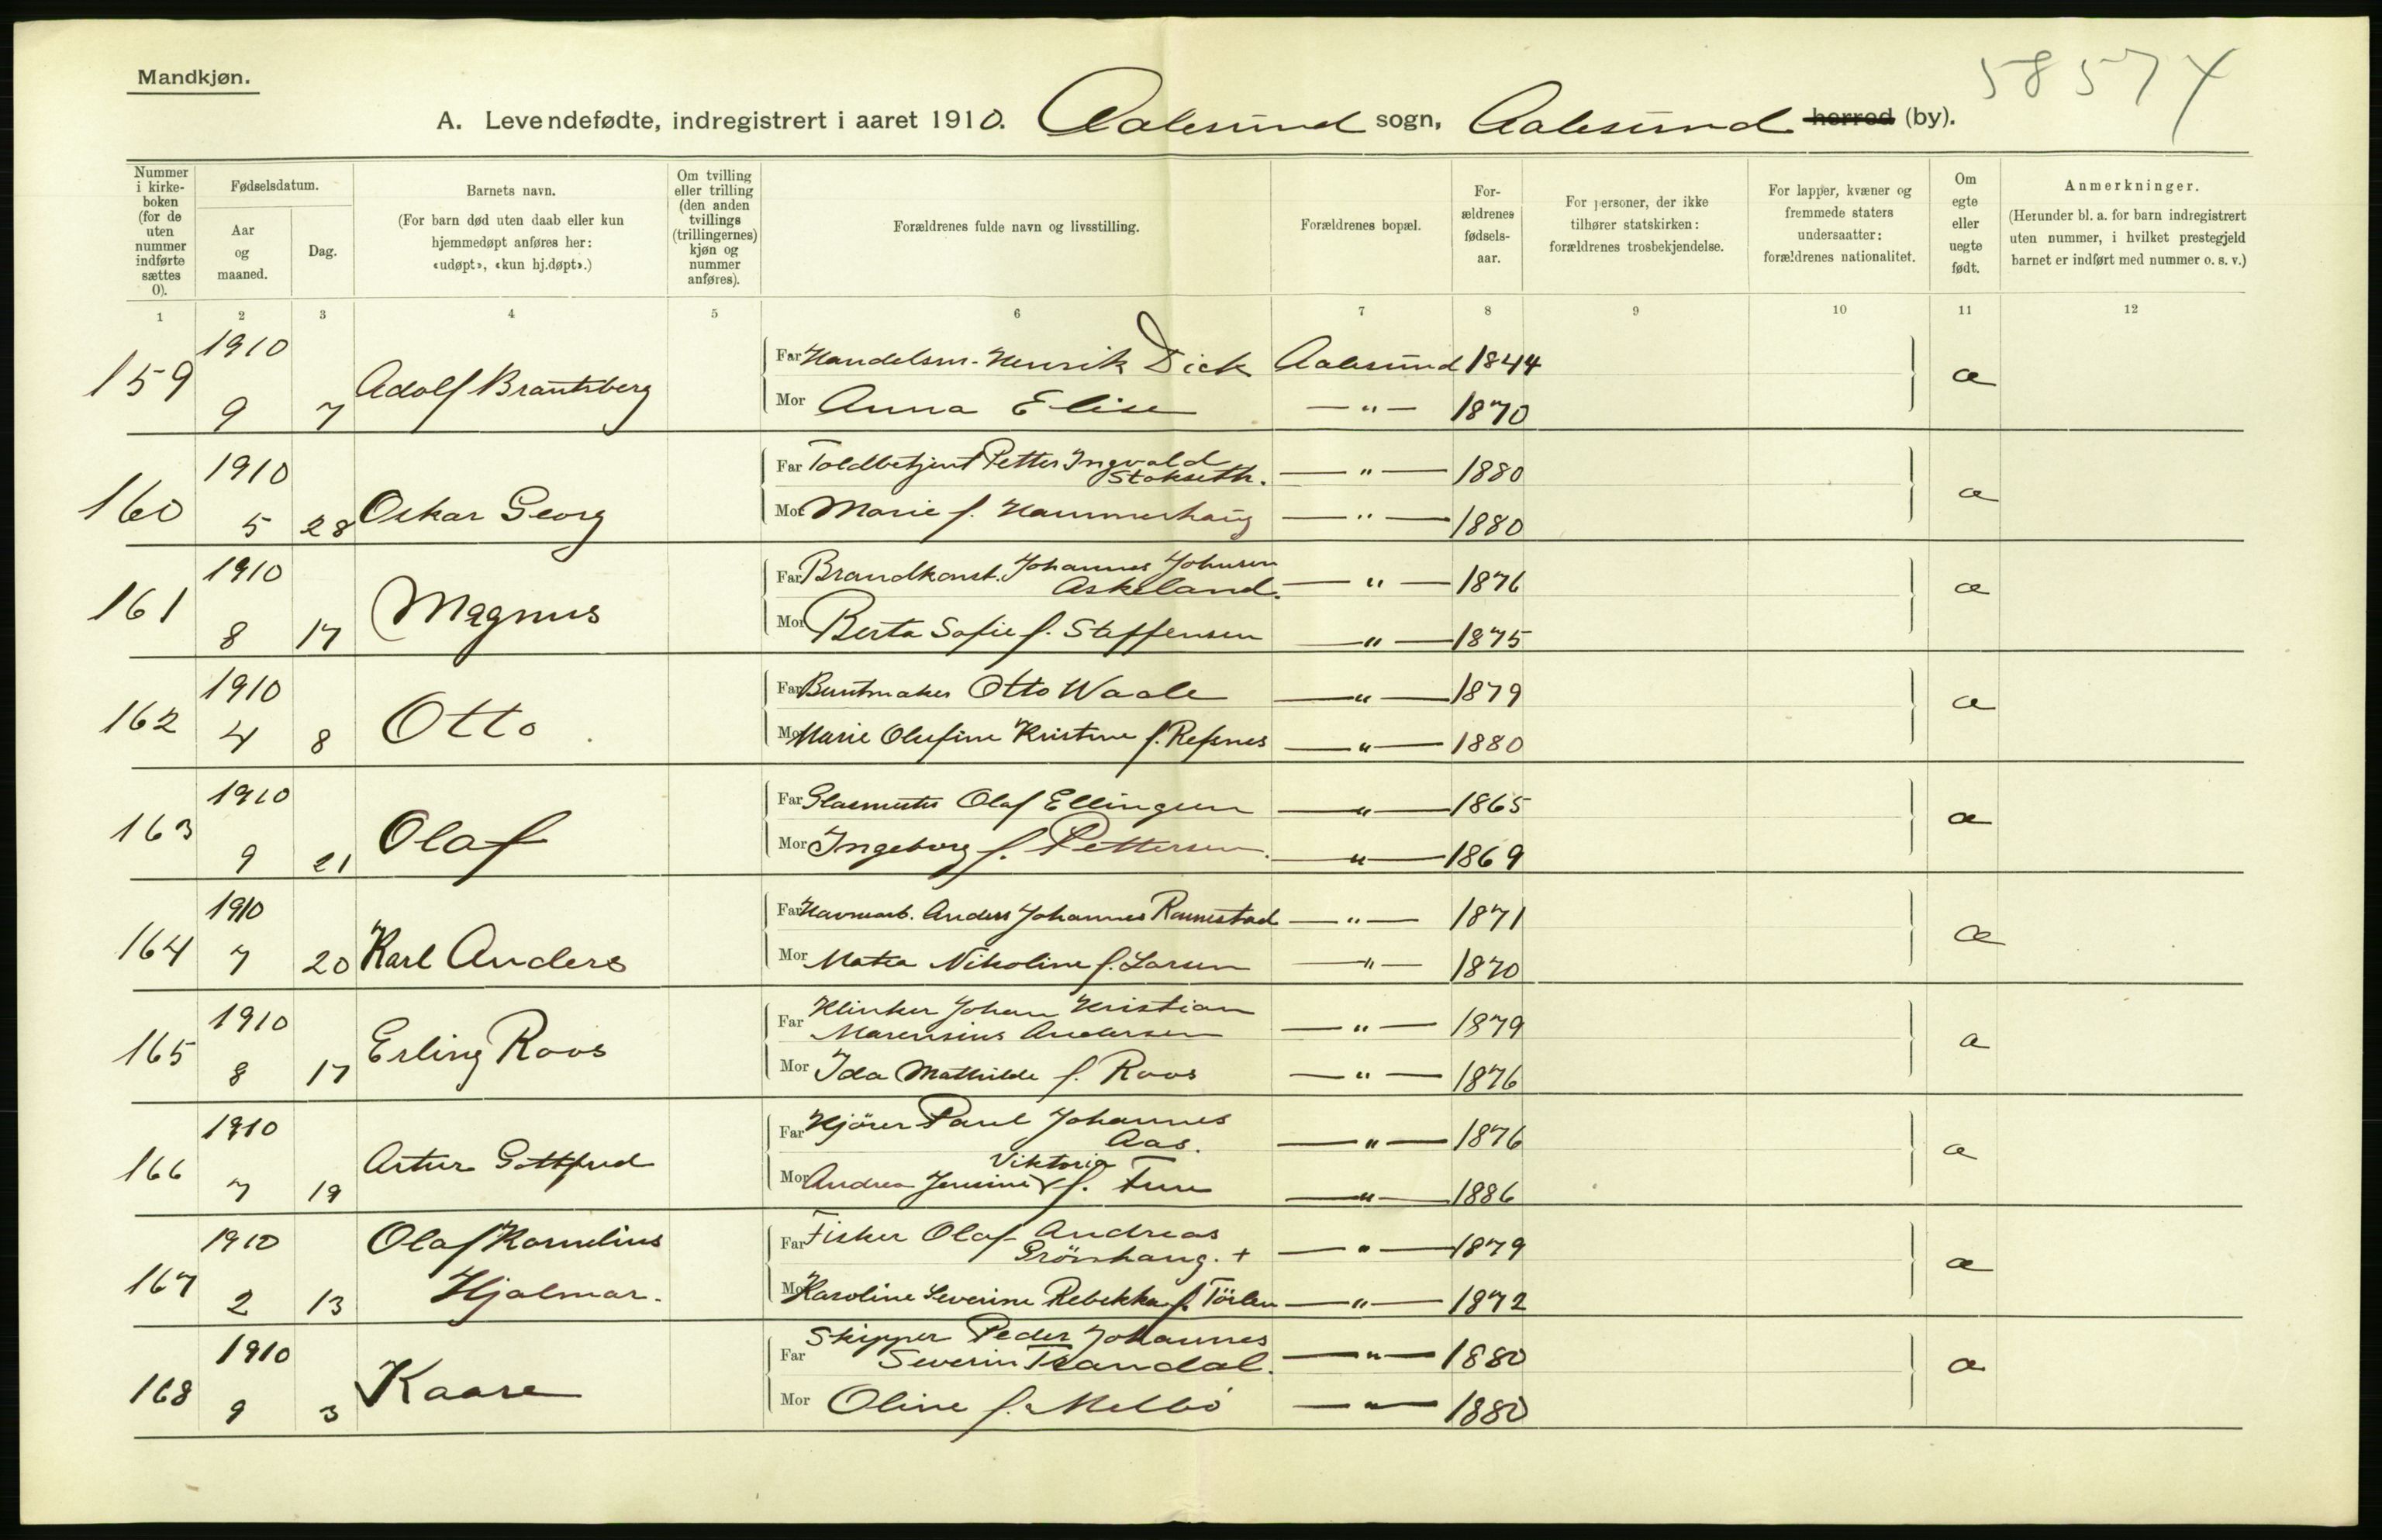 58574
Mandkjøn.
A. Levendefødte, indregistrert i aaret 1910. Aalesund sogn, Aalesund herred (by).
Nummer i kirke-boken (for de uten nummer indførte sættes 0).
Fødselsdatum.
Aar og maaned.
Dag.
Barnets navn.
(For barn død uten daab eller kun hjemmedøpt anføres her: «udøpt», «kun hj.døpt».)
Om tvilling eller trilling (den anden tvillings (trillingernes) kjøn og nummer anføres).
Forældrenes fulde navn og livsstilling.
Forældrenes bopæl.
For-ældrenes fødsels-aar.
For personer, der ikke tilhører statskirken: forældrenes trosbekjendelse.
For lapper, kvæner og fremmede staters undersaatter: forældrenes nationalitet.
Om egte eller uegte født.
Anmerkninger.
(Herunder bl. a. for barn indregistrert uten nummer, i hvilket prestegjeld barnet er indført med nummer o. s. v.)
1 2 3 4 5 6 7 8 9 10 11 12
159 1910 9 7 Adolf Brantsberg
Far Handelsm. Henrik Dick Aalesund 1844
Mor Anna Elise — " — 1870
a
160 1910 5 28 Oskar Georg
Far Toldbetjent Petter Ingvald Stokseth. — " — 1880
Mor Marie f. Hammerhaug — " — 1880
a
161 1910 8 17 Magnus
Far Brandkonst. Johannes Johnsen Askeland. — " — 1876
Mor Berta Sofie f. Steffensen — " — 1875
a
162 1910 4 8 Otto
Far Buntmaker Otto Waale — " — 1879
Mor Marie Olufine Kristine f. Refsnes — " — 1880
a
163 1910 9 21 Olaf
Far Glasmester Olaf Ellingsen — " — 1865
Mor Ingeborg f. Pettersen. — " — 1869
a
164 1910 7 20 Karl Anders
Far Havnearb. Anders Johannes Ramstad — " — 1871
Mor Nikoline f. Larsen — " — 1870
a
165 1910 8 17 Erling Roos
Far Klinker Johan Kristian Marensius Andersen — " — 1879
Mor Ida Mathilde f. Roos — " — 1876
a
166 1910 7 19 Artur Gottfred
Far Kjörer Paul Johannes Aas. — " — 1876
Mor Andrea Jensine Viktoria f. — " — 1886
a
167 1910 2 13 Olaf Kornelius Hjalmar.
Far Fisker Olaf Andreas Grönhaug. + — " — 1879
Mor Karoline Severine Rebekka f. — " — 1872
a
168 1910 9 3 Kaare
Far Skipper Peder Johannes Severin Trandal. — " — 1880
Mor Oline f. Melbö — " — 1880
a